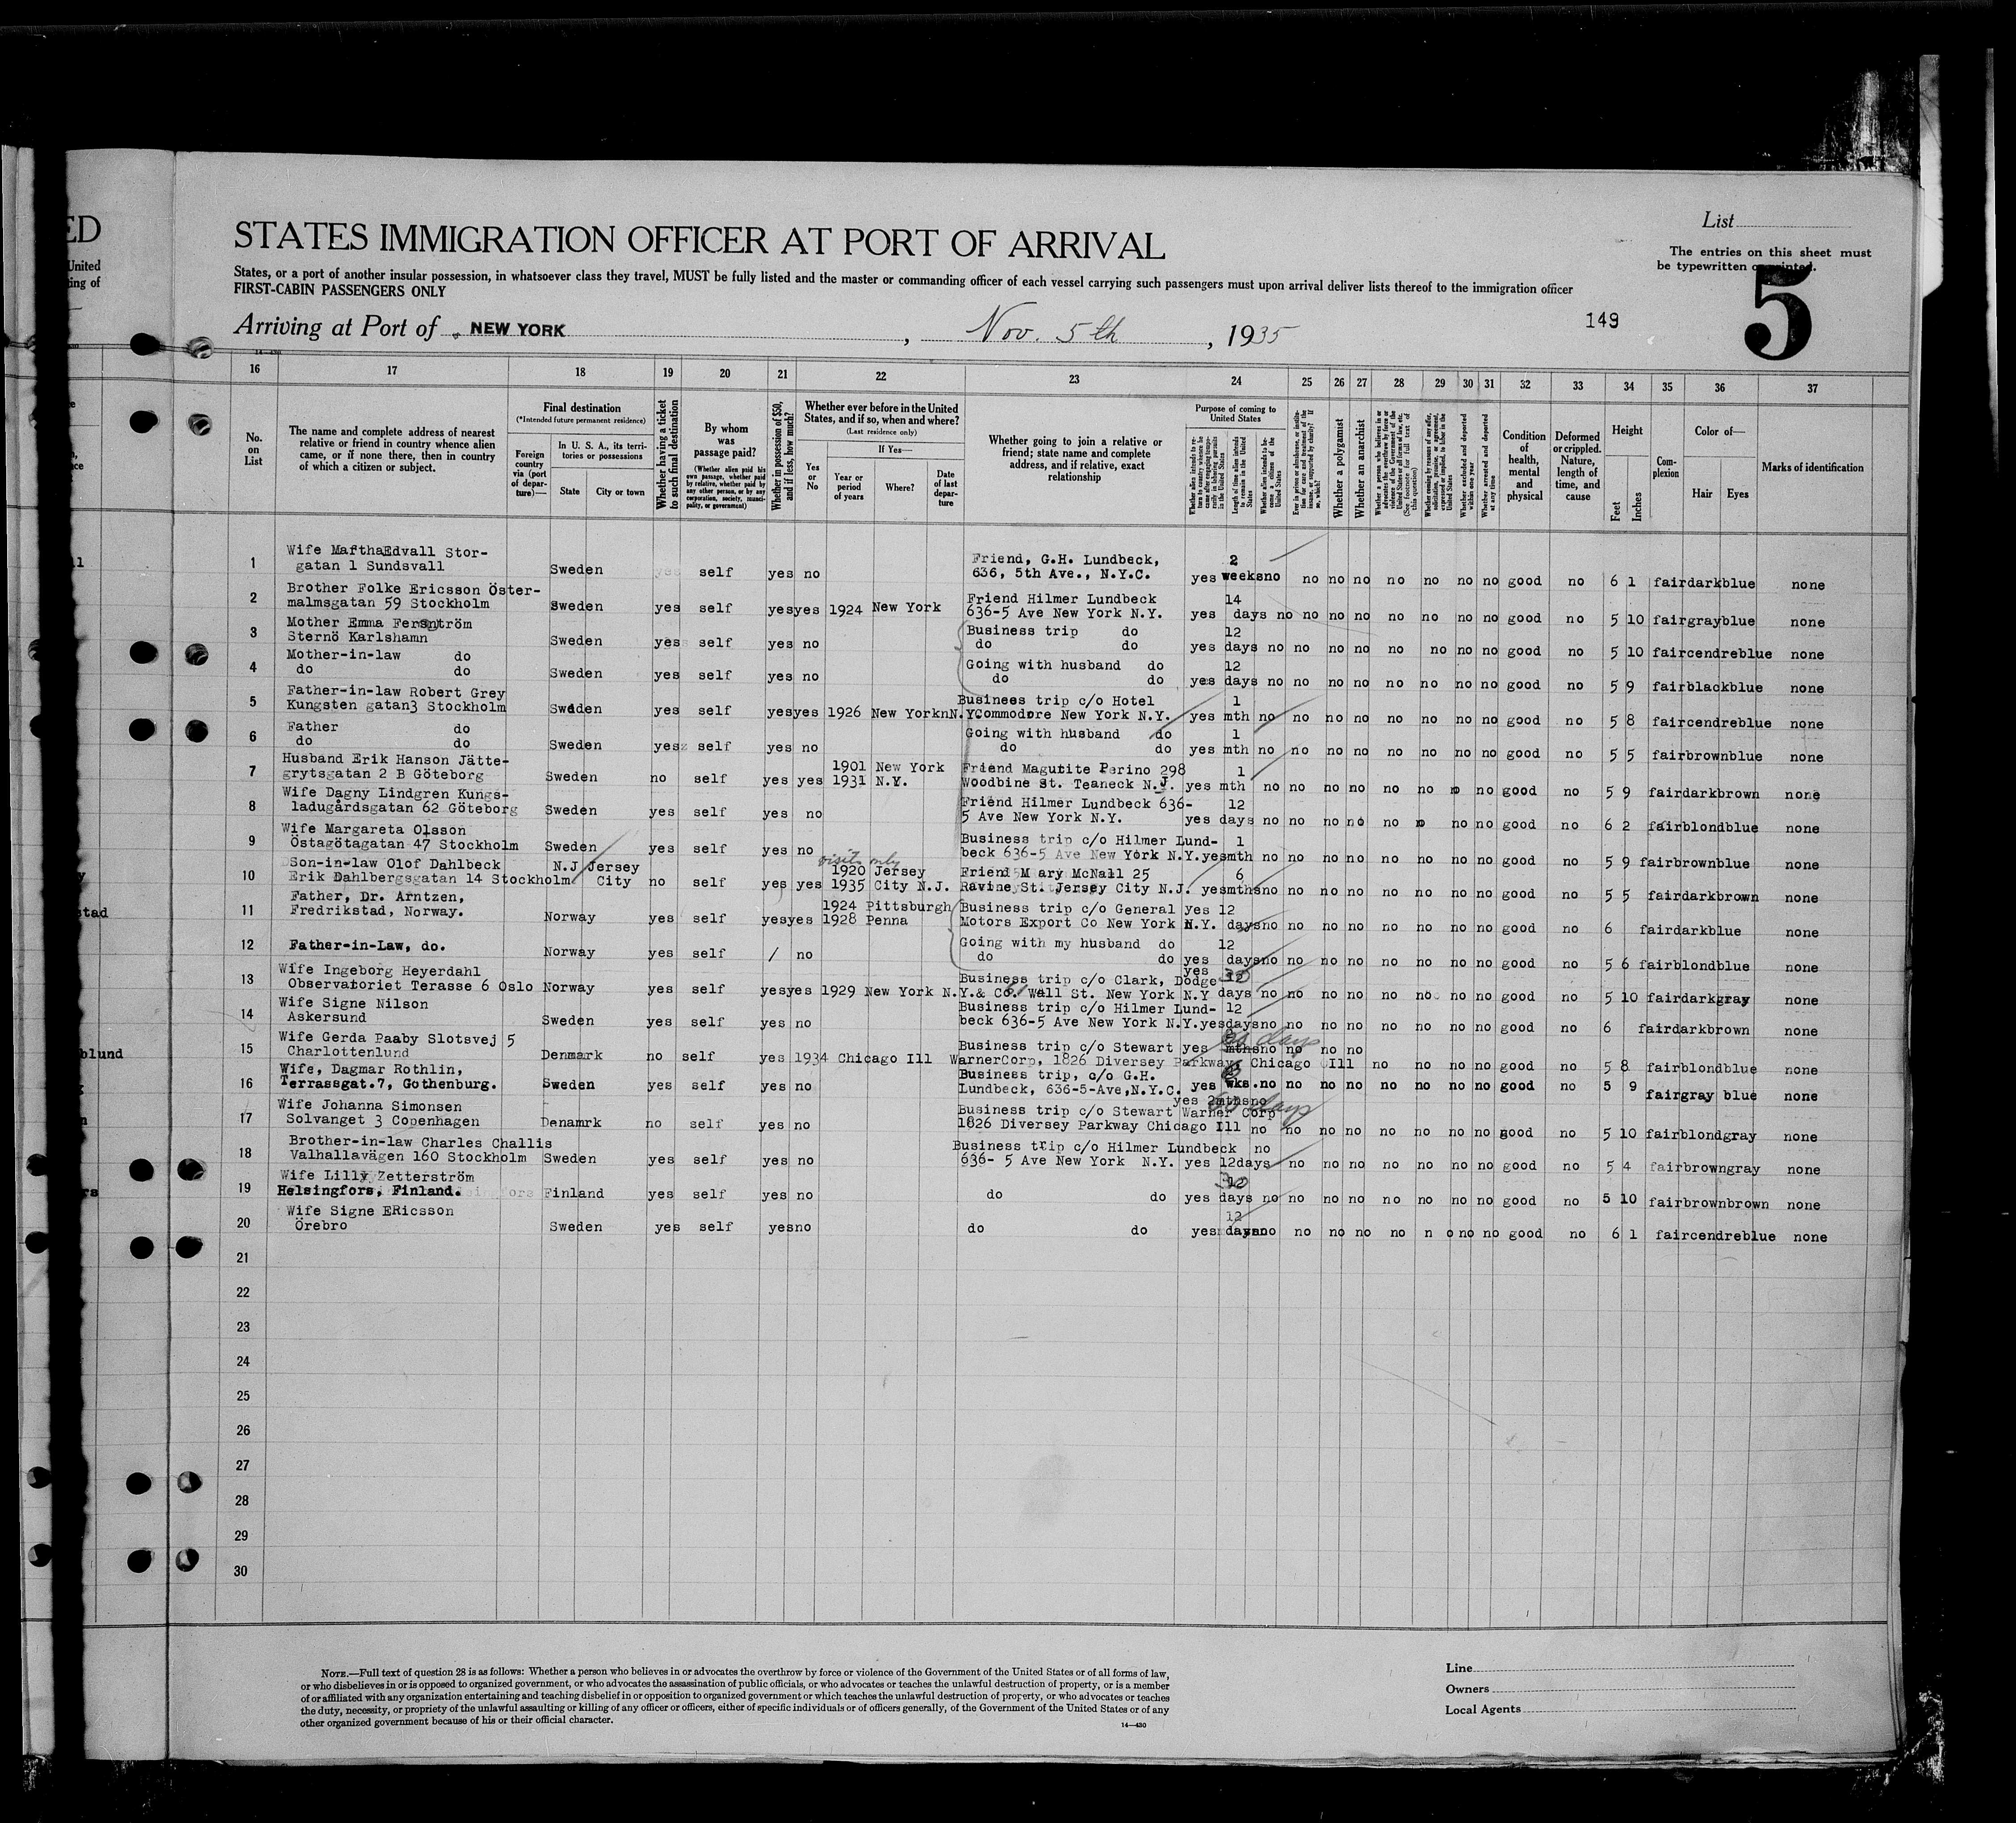 ED
United
ing of
STATES IMMIGRATION OFFICER AT PORT OF ARRIVAL
List
The entries on this sheet must
be typewritten or printed.
5
States, or a port of another insular possession, in whatsoever class they travel, MUST be fully listed and the master or commanding officer of each vessel carrying such passengers must upon arrival deliver lists thereof to the immigration officer
FIRST-CABIN PASSENGERS ONLY
Arriving at Port of NEW YORK, Nov. 5th, 1935
149
16 17 18 19 20 21 22 23 24 25 26 27 28 29 30 31 32 33 34 35 36 37
No. on List
The name and complete address of nearest relative or friend in country whence alien came, or if none there, then in country of which a citizen or subject.
Final destination
(*Intended future permanent residence)
Foreign country via (port of departure)—
In U. S. A., its territories or possessions
State
City or town
Whether having a ticket to such final destination
By whom was passage paid?
(Whether alien paid his own passage, whether paid by relative, whether paid by any other person, or by any corporation, society, municipality, or government)
Whether in possession of $50, and if less, how much?
Whether ever before in the United States, and if so, when and where?
(Last residence only)
Yes or No
If Yes—
Year or period of years
Where?
Date of last departure
Whether going to join a relative or friend; state name and complete address, and if relative, exact relationship
Purpose of coming to United States
Length of time alien intends to remain in the United States
Whether alien intends to become a citizen of the United States
Whether a polygamist
Whether an anarchist
Whether excluded and deported within one year
Whether arrested and deported at any time
Condition of health, mental and physical
Deformed or crippled. Nature, length of time, and cause
Height
Feet
Inches
Complexion
Color of—
Hair
Eyes
Marks of identification
1 Wife MarthaEdvall Stor- Friend, G.H. Lundbeck, 2
gatan 1 Sundsvall Sweden yes self yes no 636, 5th Ave., N.Y.C. yes weeks no no no no no no no no good no 6 1 fair dark blue none
2 Brother Folke Ericsson Öster- Friend Hilmer Lundbeck 14
malmsgatan 59 Stockholm Sweden yes self yes yes 1924 New York 636-5 Ave New York N.Y. yes days no no no no no no no no good no 5 10 fair gray blue none
3 Mother Emma Business trip do 12
Sternö Karlshamn Sweden yes self yes no do do yes days no no no no no no no no good no 5 10 fair cendre blue none
4 Mother-in-law do Going with husband do 12
do do Sweden yes self yes no do do yes days no no no no no no no no good no 5 9 fair black blue none
5 Father-in-law Robert Grey Business trip c/o Hotel 1
Kungsten gatan3 Stockholm Sweden yes self yes yes 1926 New York N.Y. Commodore New York N.Y. yes mth no no no no no no no no good no 5 8 fair cendre blue none
6 Father do Going with husband do 1
do do Sweden yes self yes no do do yes mth no no no no no no no no good no 5 5 fair brown blue none
7 Husband Erik Hanson Jätte- 1901 New York Friend Magutite Perino 298 1
grytsgatan 2 B Göteborg Sweden no self yes yes 1931 N.Y. Woodbine St. Teaneck N.J. yes mth no no no no no no no no good no 5 9 fair dark brown none
8 Wife Dagny Lindgren Kungs- Friend Hilmer Lundbeck 636- 12
ladugårdsgatan 62 Göteborg Sweden yes self yes no 5 Ave New York N.Y. yes days no no no no no no no no good no 6 2 fair blond blue none
9 Wife Margareta Olsson Business trip c/o Hilmer Lund- 1
Östagötagatan 47 Stockholm Sweden yes self yes no beck 636-5 Ave New York N.Y. yes mth no no no no no no no no good no 5 9 fair brown blue none
visits only
10 Son-in-law Olof Dahlbeck N.J Jersey 1920 Jersey Friend Mary McNall 25 6
Erik Dahlbergsgatan 14 Stockholm City no self yes yes 1935 City N.J. Ravine St. Jersey City N.J. yes mths no no no no no no no no good no 5 5 fair dark brown none
11 Father, Dr. Arntzen, 1924 Pittsburgh Business trip c/o General yes 12
Fredrikstad, Norway. Norway yes self yes yes 1928 Penna Motors Export Co New York N.Y. days no no no no no no no no good no 6 fair dark blue none
12 Father-in-Law, do. Going with my husband do 12
Norway yes self / no do do yes days no no no no no no no no good no 5 6 fair blond blue none
13 Wife Ingeborg Heyerdahl Business trip c/o Clark, Dodge yes 30
Observatoriet Terasse 6 Oslo Norway yes self yes yes 1929 New York N.Y. & Co. 61 Wall St. New York N.Y days no no no no no no no no good no 5 10 fair dark gray none
14 Wife Signe Nilson Business trip c/o Hilmer Lund- 12
Askersund Sweden yes self yes no beck 636-5 Ave New York N.Y. yes days no no no no no no no no good no 6 fair dark brown none
15 Wife Gerda Paaby Slotsvej 5 Business trip c/o Stewart yes mths no no no no days
Charlottenlund Denmark no self yes 1934 Chicago Ill Warner Corp, 1826 Diversey Parkway Chicago Ill no no no no good no 5 8 fair blond blue none
16 Wife, Dagmar Rothlin, Business trip, c/o G.H.
Terrassgat.7, Gothenburg. Sweden yes self yes no Lundbeck, 636-5-Ave,N.Y.C. yes wks. no no no no no no no no good no 5 9 fair gray blue none
17 Wife Johanna Simonsen Business trip c/o Stewart Warner Corp yes 2mths no days
Solvanget 3 Copenhagen Denamrk no self yes no 1826 Diversey Parkway Chicago Ill no no no no no no no no good no 5 10 fair blond gray none
18 Brother-in-law Charles Challis Business trip c/o Hilmer Lundbeck no
Valhallavägen 160 Stockholm Sweden yes self yes no 636- 5 Ave New York N.Y. yes 12days no no no no no no no good no 5 4 fair brown gray none
19 Wife Lilly Zetterström 30
Helsingfors, Finland. Finland yes self yes no do do yes days no no no no no no no no good no 5 10 fair brown brown none
20 Wife Signe ERicsson 12
Örebro Sweden yes self yes no do do yes days no no no no no n o no no good no 6 1 fair cendre blue none
21
22
23
24
25
26
27
28
29
30
NOTE.—Full text of question 28 is as follows: Whether a person who believes in or advocates the overthrow by force or violence of the Government of the United States or of all forms of law,
or who disbelieves in or is opposed to organized government, or who advocates the assassination of public officials, or who advocates or teaches the unlawful destruction of property, or is a member
of or affiliated with any organization entertaining and teaching disbelief in or opposition to organized government or which teaches the unlawful destruction of property, or who advocates or teaches
the duty, necessity, or propriety of the unlawful assaulting or killing of any officer or officers, either of specific individuals or of officers generally, of the Government of the United States or of any
other organized government because of his or their official character.
14—430
Line
Owners
Local Agents